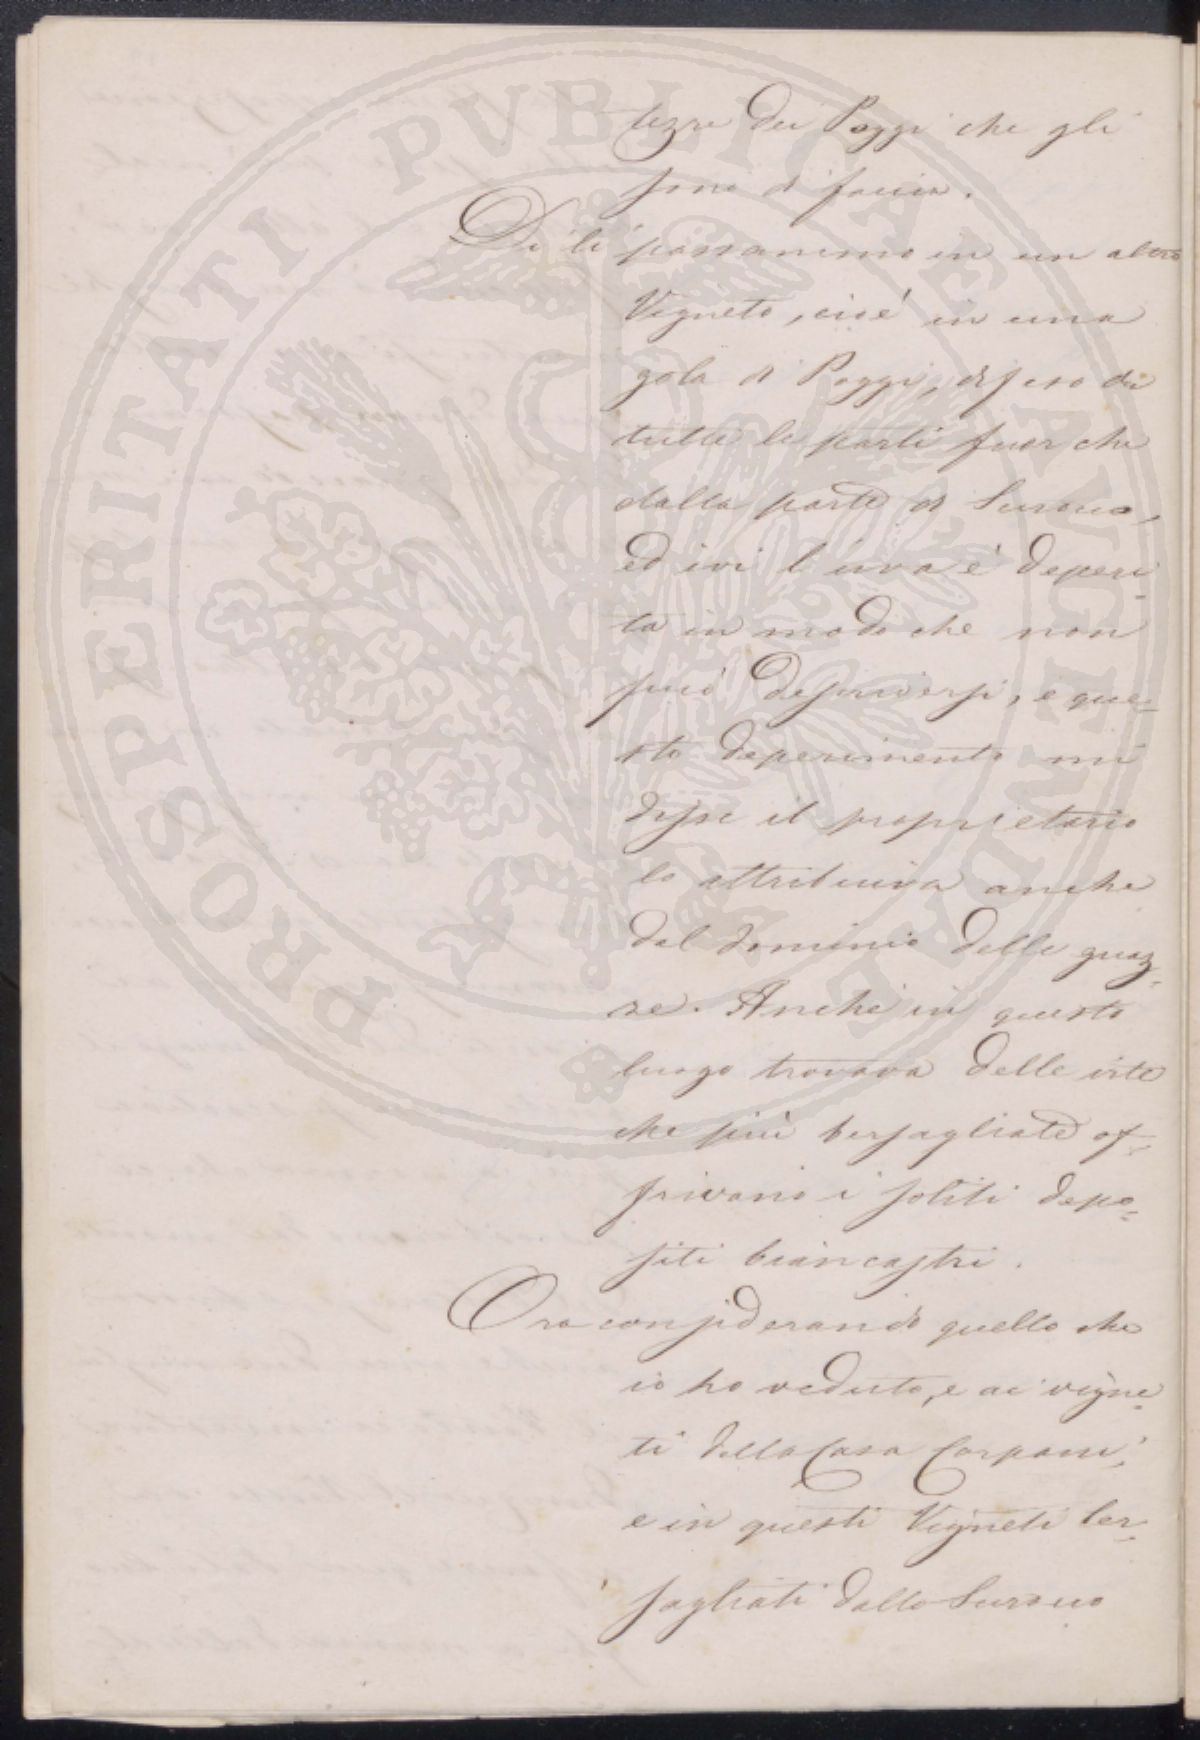 tezze dei Poggi che gli
sono di faccia.
Di lì passammo in un altro
Vigneto, cioè in una
gola di Poggi, difeso da
tutte le parti fuor che
dalla parte di Scirocco,
ed ivi l'uva è deperi=
ta in modo che non
può descriversi, e que=
sto deperimento mi
disse il proprietario
lo attribuiva anche
dal dominio delle guaz=
ze. Anche in questo
luogo trovava delle viti
che più bersagliate of=
frivano i soliti depo=
siti biancastri.
Ora considerando quello che
io ho veduto, e ai vigne=
ti della Casa
e in questi Vigneti ber=
sagliati dallo Scirocco
PROSPERITATI PVBLICAE AVGENDAE